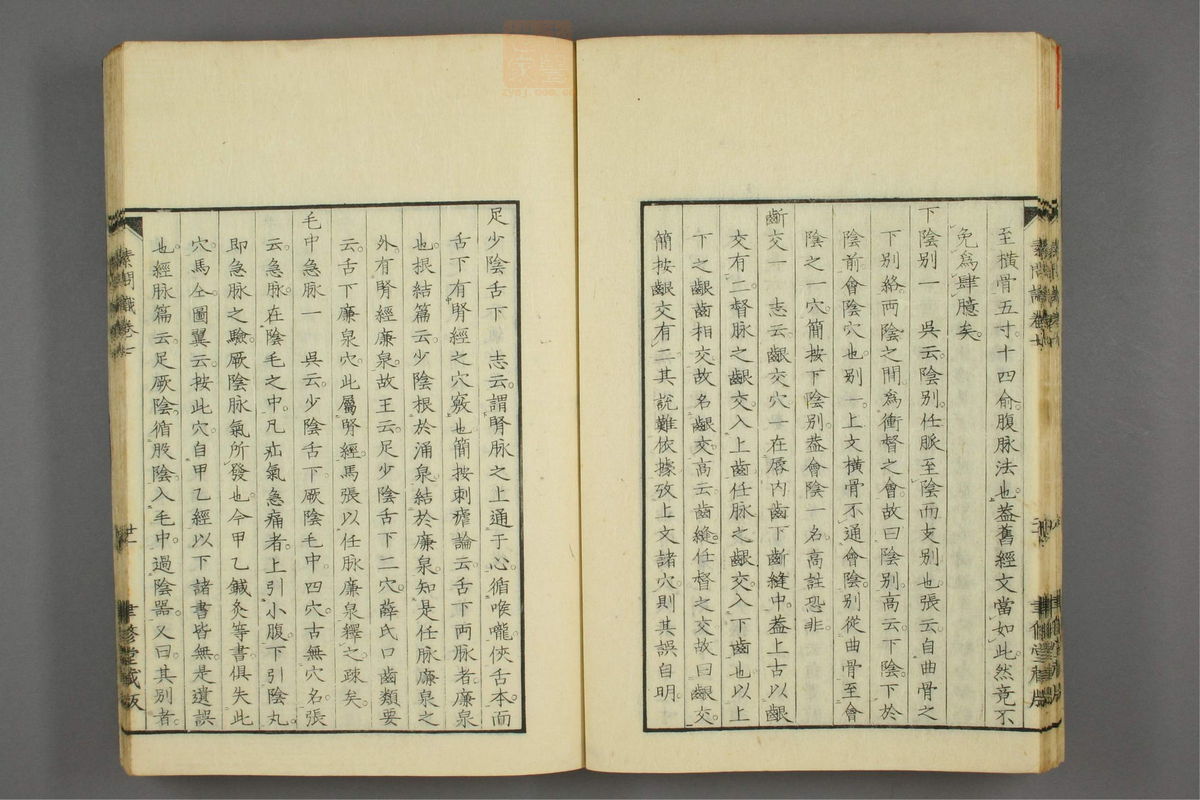 至橫骨五寸十四俞腹脉法也葢舊經文當如此然竟不
免爲肆臆矣
下陰別一　吳云陰別任脈至陰而支別也張云自曲骨之
下別絡兩陰之間爲衝督之會故曰陰別高云下陰下於
陰前會陰穴也別一上文橫骨不通會陰別從曲骨至會
陰之一穴簡按下陰別葢會陰一名高註恐非
齗交一　志云齦交穴一在唇內齒下齗縫中葢上古以齦
交有二督脉之齦交入上齒任脉之齦交入下齒也以上
下之齦齒相交故名齦交高云齒縫任督之交故曰齦交
簡按齦交有二其說難依據攷上文諸穴則其誤自明
足少陰舌下　志云謂腎脉之上通于心循喉嚨俠舌本而
舌下有腎經之穴竅也簡按刺瘧論云舌下兩脉者廉泉
也根結篇云少陰根於涌泉結於廉泉知是任脉廉泉之
外有腎經廉泉故王云足少陰舌下二穴薛氏口齒類要
云舌下廉泉穴此屬腎經馬張以任脉廉泉釋之疎矣
毛中急脉一　吳云少陰舌下厥陰毛中四穴古無穴名張
云急脉在陰毛之中凡疝氣急痛者上引小腹下引陰丸
即急脉之驗厥陰脉氣所發也今甲乙鍼灸等書俱失此
穴馬仝圖翼云按此穴自甲乙經以下諸書皆無是遺誤
也經脉篇云足厥陰循股陰入毛中過陰器又曰其別者
素問識卷七
廿一
聿修堂藏版